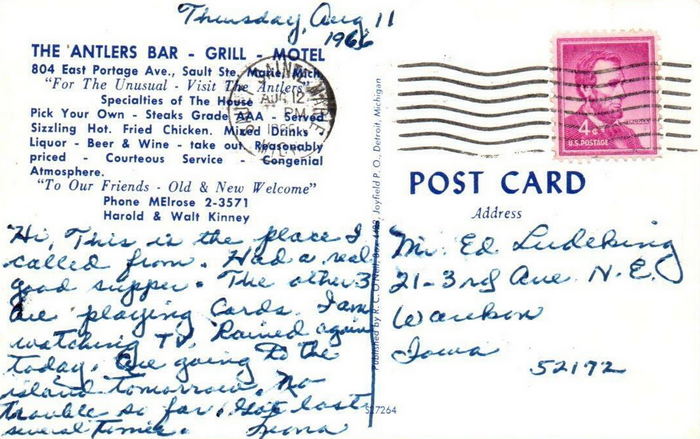 Thursday, Aug 11
1966
THE ANTLERS BAR - GRILL - MOTEL
804 East Portage Ave., Sault Ste. Marie, Mich.
"For The Unusual - Visit The Antlers"
Specialties of The House
Pick Your Own - Steaks Grade AAA - Served
Sizzling Hot. Fried Chicken. Mixed Drinks
Liquor - Beer & Wine - take out. Reasonably
priced - Courteous Service - Congenial
Atmosphere.
"To Our Friends - Old & New Welcome"
Phone MElrose 2-3571
Harold & Walt Kinney
Hi, This is the place I
called from. Had a real
good supper. The other 3
are playing cards. I am
watching TV. Rained again
today. Are going to the
island tomorrow. No
trouble so far. Got lost
several times. Leona
AUG 12
PM
Published by R. C. O'Neil, Box Joyfield P. O., Detroit, Michigan
S27264
4¢
U.S. POSTAGE
POST CARD
Address
Mr. Ed Ludeking
21-3rd Ave. N.E.
Waukon
Iowa
52172